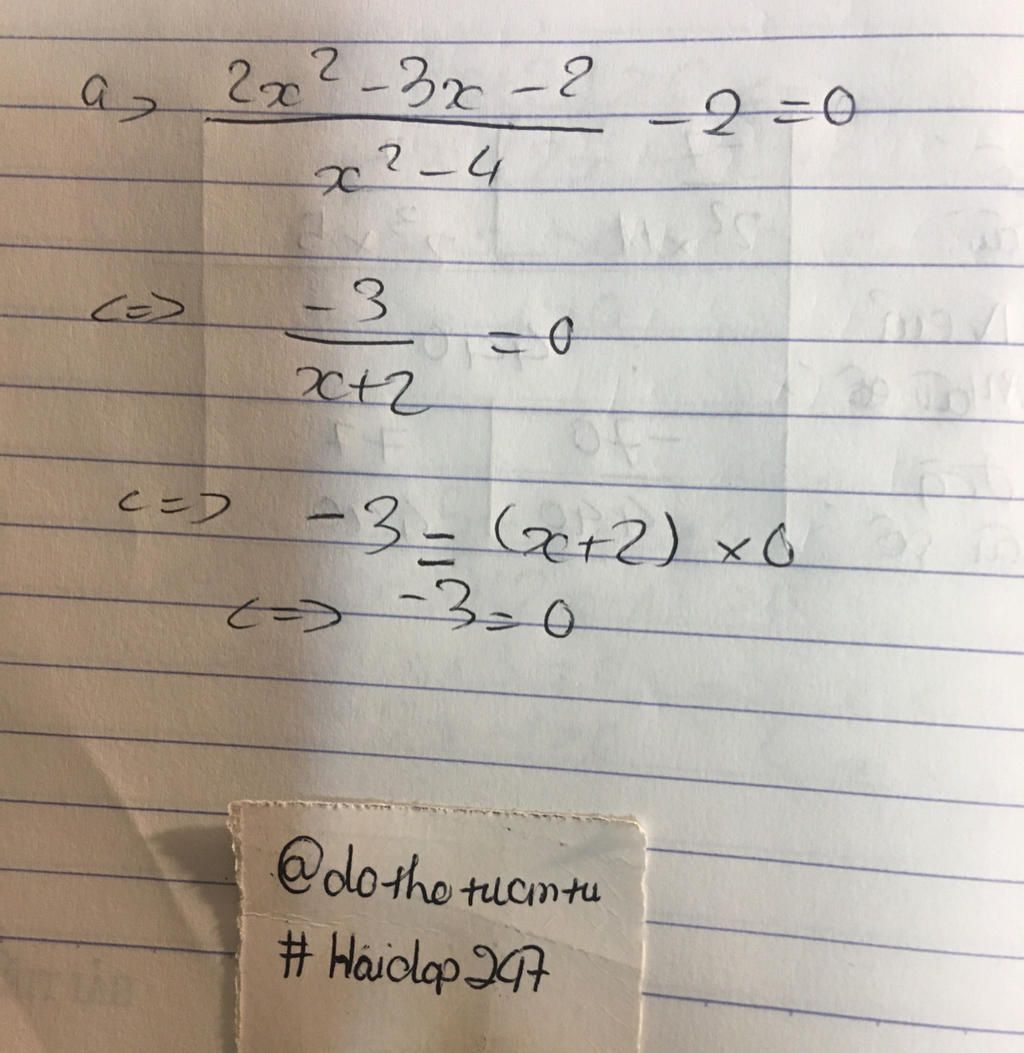 a> (2x² - 3x - 2)/(x² - 4) - 2 = 0
<=> -3/(x+2) = 0
<=> -3 = (x+2) × 0
<=> -3 = 0
@dothotuantu
#Haidap247